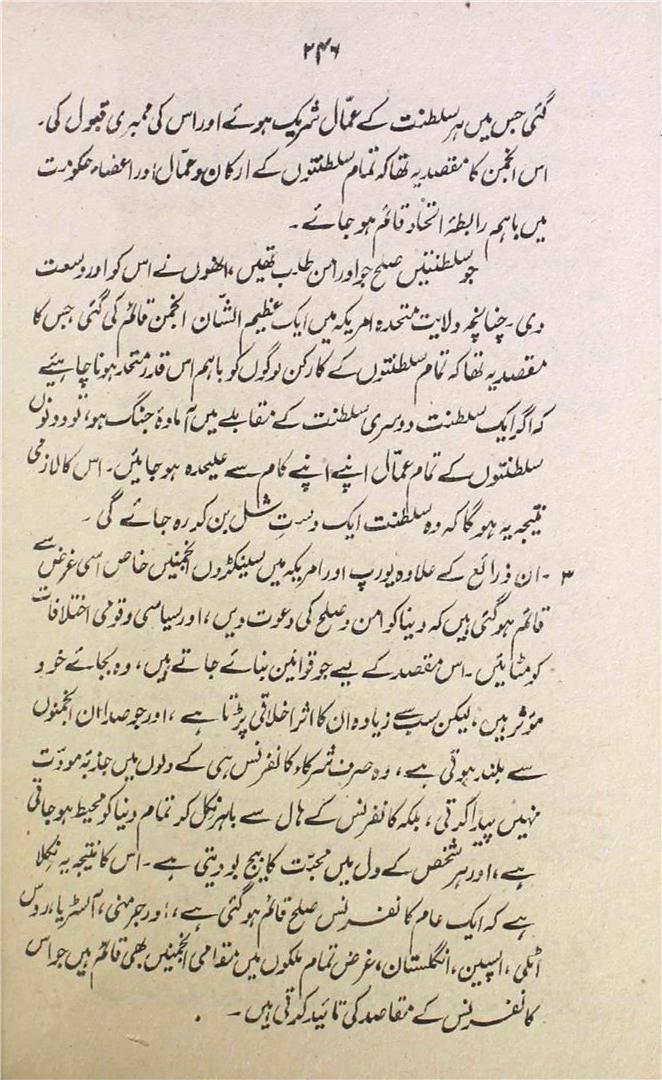 ۲۴۶
گئی جس میں ہر سلطنت کے عمّال شریک ہوئے اور اس کی ممبری قبول کی۔
اس انجمن کا مقصد یہ تھا کہ تمام سلطنتوں کے ارکان و عمّال اور اعضاء حکومت
میں باہم رابطۂ اتحاد قائم ہو جائے۔
جو سلطنتیں صلح جو اور امن طلب تھیں، انھوں نے اس کو اور وسعت
دی۔ چنانچہ ولایت متحدہ امریکہ میں ایک عظیم الشّان انجمن قائم کی گئی جس کا
مقصد یہ تھا کہ تمام سلطنتوں کے کارکن لوگوں کو باہم اس قدر متحد ہونا چاہئیے
کہ اگر ایک سلطنت دوسری سلطنت کے مقابلے میں آمادۂ جنگ ہو، تو دونوں
سلطنتوں کے تمام عمّال اپنے اپنے کام سے علیحدہ ہو جائیں۔ اس کا لازمی
نتیجہ یہ ہو گا کہ وہ سلطنت ایک دستِ شل بن کر رہ جائے گی۔
۳۔ ان ذرائع کے علاوہ یورپ اور امریکہ میں سینکڑوں انجمنیں خاص اسی غرض سے
قائم ہو گئی ہیں کہ دنیا کو امن و صلح کی دعوت دیں، اور سیاسی و قومی اختلافات
کو مٹائیں۔ اس مقصد کے لیے جو قوانین بنائے جاتے ہیں، وہ بجائے خود
مؤثر ہیں، لیکن سب سے زیادہ ان کا اثر اخلاقی پڑتا ہے، اور جو صدا ان انجمنوں
سے بلند ہوتی ہے، وہ صرف شرکاء کانفرنس ہی کے دلوں میں جذبۂ مودّت
نہیں پیدا کرتی، بلکہ کانفرنس کے ہال سے باہر نکل کر تمام دنیا کو محیط ہو جاتی
ہے، اور ہر شخص کے دل میں محبّت کا بیج بو دیتی ہے۔ اس کا نتیجہ یہ نکلا
ہے کہ ایک عام کانفرنس صلح قائم ہو گئی ہے، اور جرمنی، آسٹریا، روس
اٹلی، اسپین، انگلستان، غرض تمام ملکوں میں مقامی انجمنیں بھی قائم ہیں جو اس
کانفرنس کے مقاصد کی تائید کرتی ہیں۔